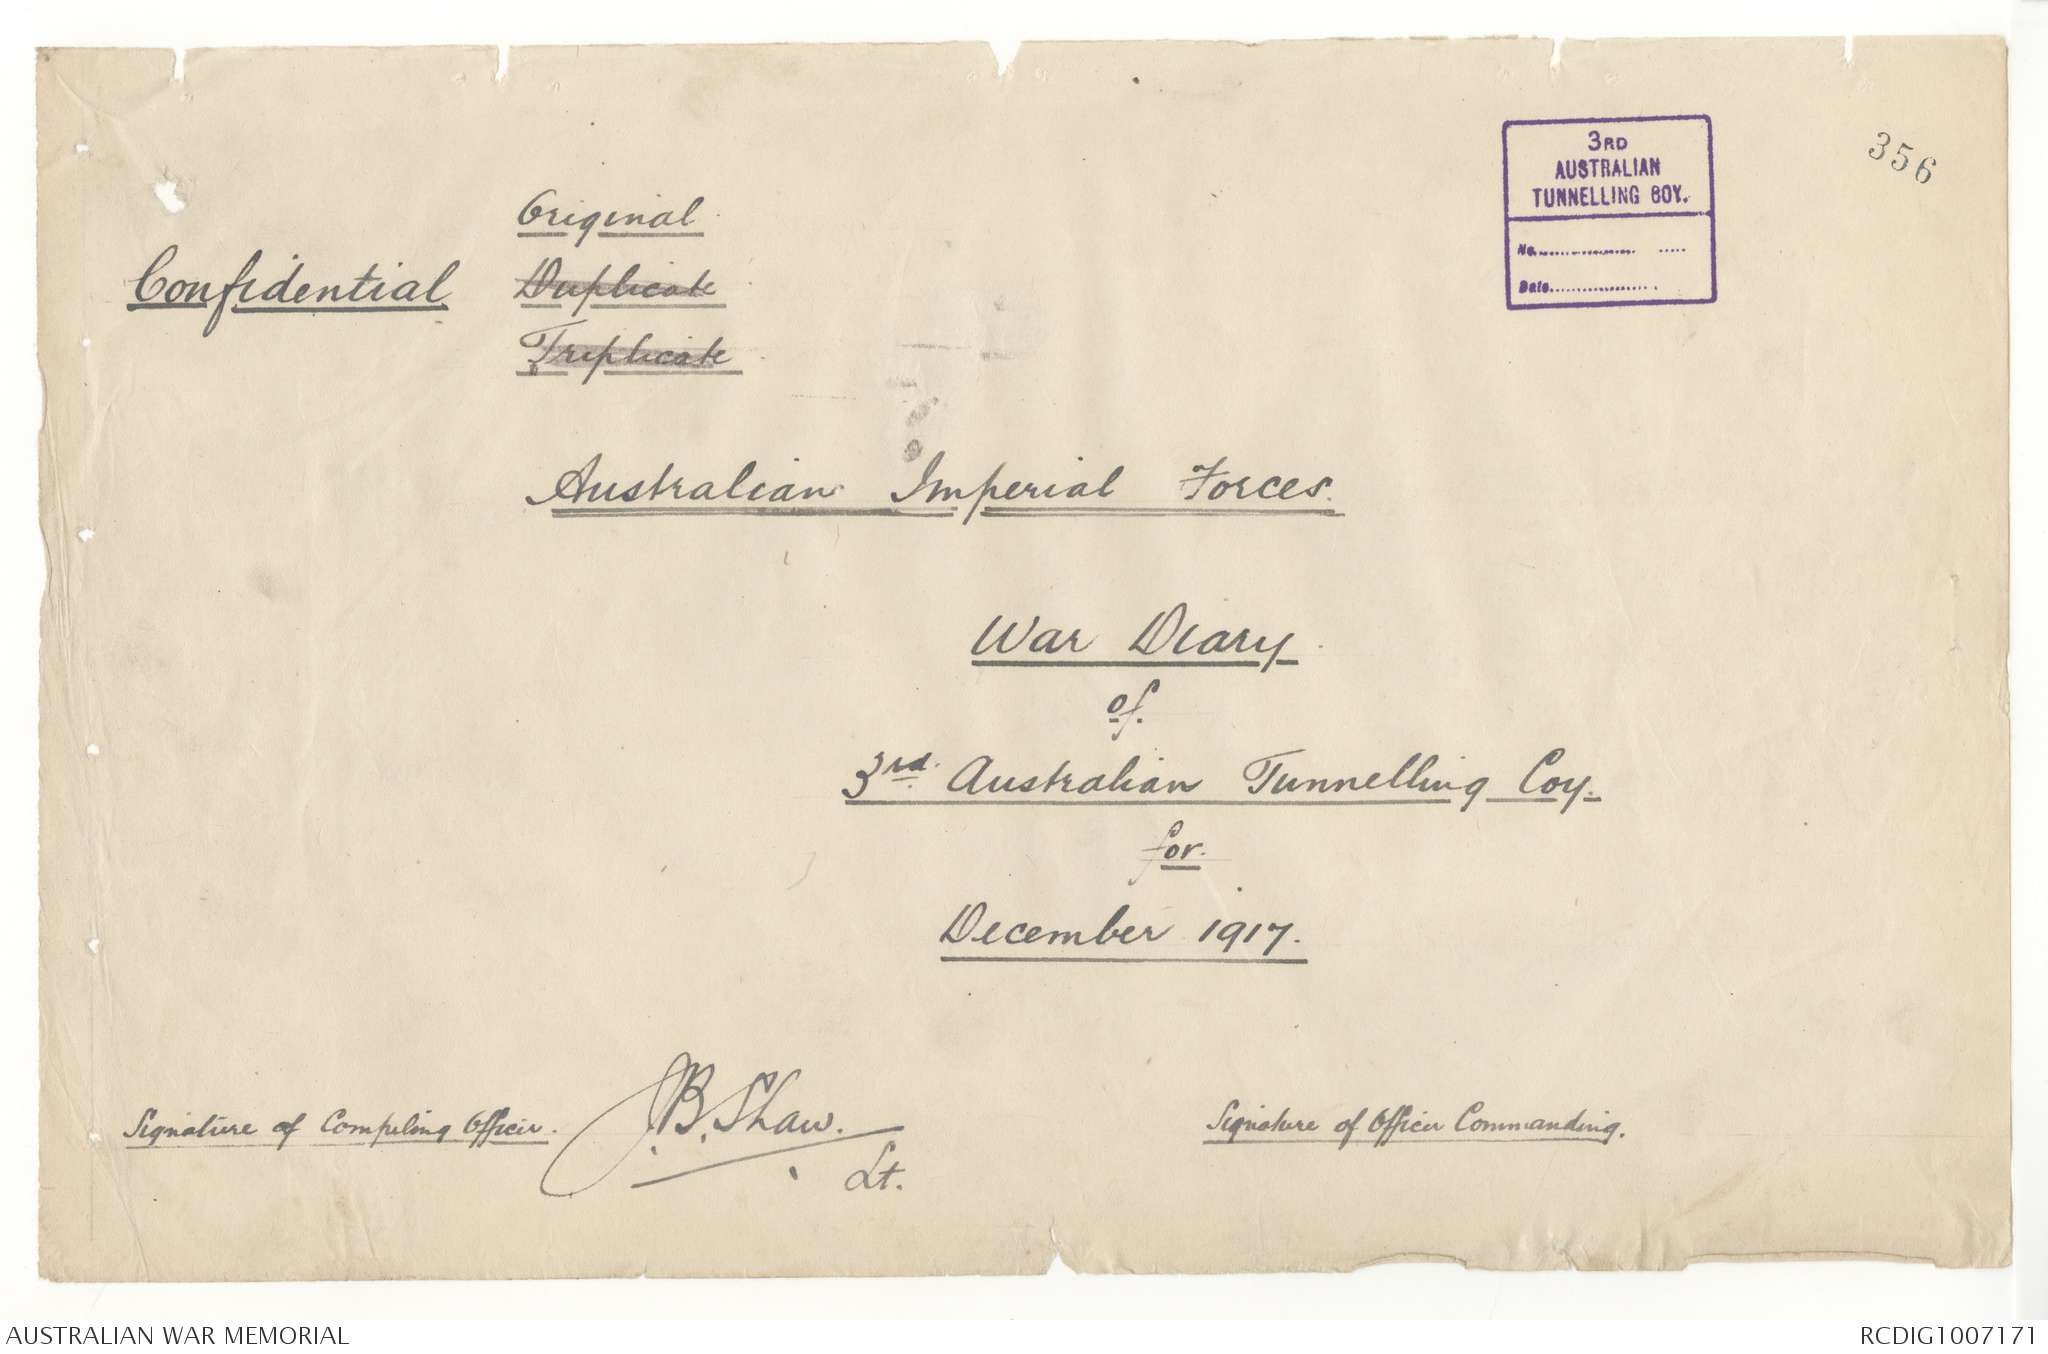 3RD
AUSTRALIAN
TUNNELLING COY.
No.
Date
356
Original.
Confidential
Duplicate
Triplicate
Australian Imperial Forces.
War Diary.
of.
3rd. Australian Tunnelling Coy.
for.
December 1917.
Signature of Compiling Officer. J.B. Shaw.
Lt.
Signature of Officer Commanding.
AUSTRALIAN WAR MEMORIAL
RCDIG1007171